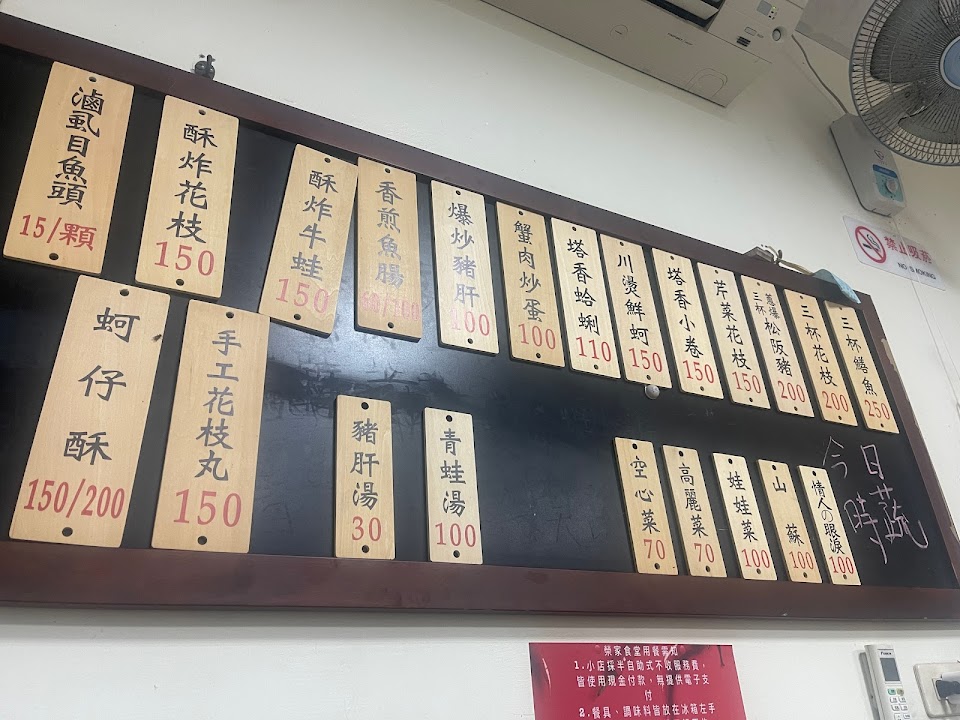 滷虱目魚頭
15/顆
酥炸花枝
150
酥炸牛蛙
150
香煎魚腸
爆炒豬肝
100
蟹肉炒蛋
100
塔香蛤蜊
110
川燙鮮蚵
150
塔香小卷
150
芹菜花枝
150
蔥爆
三杯
松阪豬
200
三杯花枝
200
三杯鱔魚
250
蚵仔酥
150/200
手工花枝丸
150
豬肝湯
30
青蛙湯
100
空心菜
70
高麗菜
70
娃娃菜
100
山蘇
100
情人の眼淚
100
今日
時蔬
禁止吸菸
NO SMOKING
榮家食堂用餐需知
1.小店採半自助式不收服務費,
皆使用現金付款,無提供電子支
付
2.餐具、調味料皆放在冰箱左手